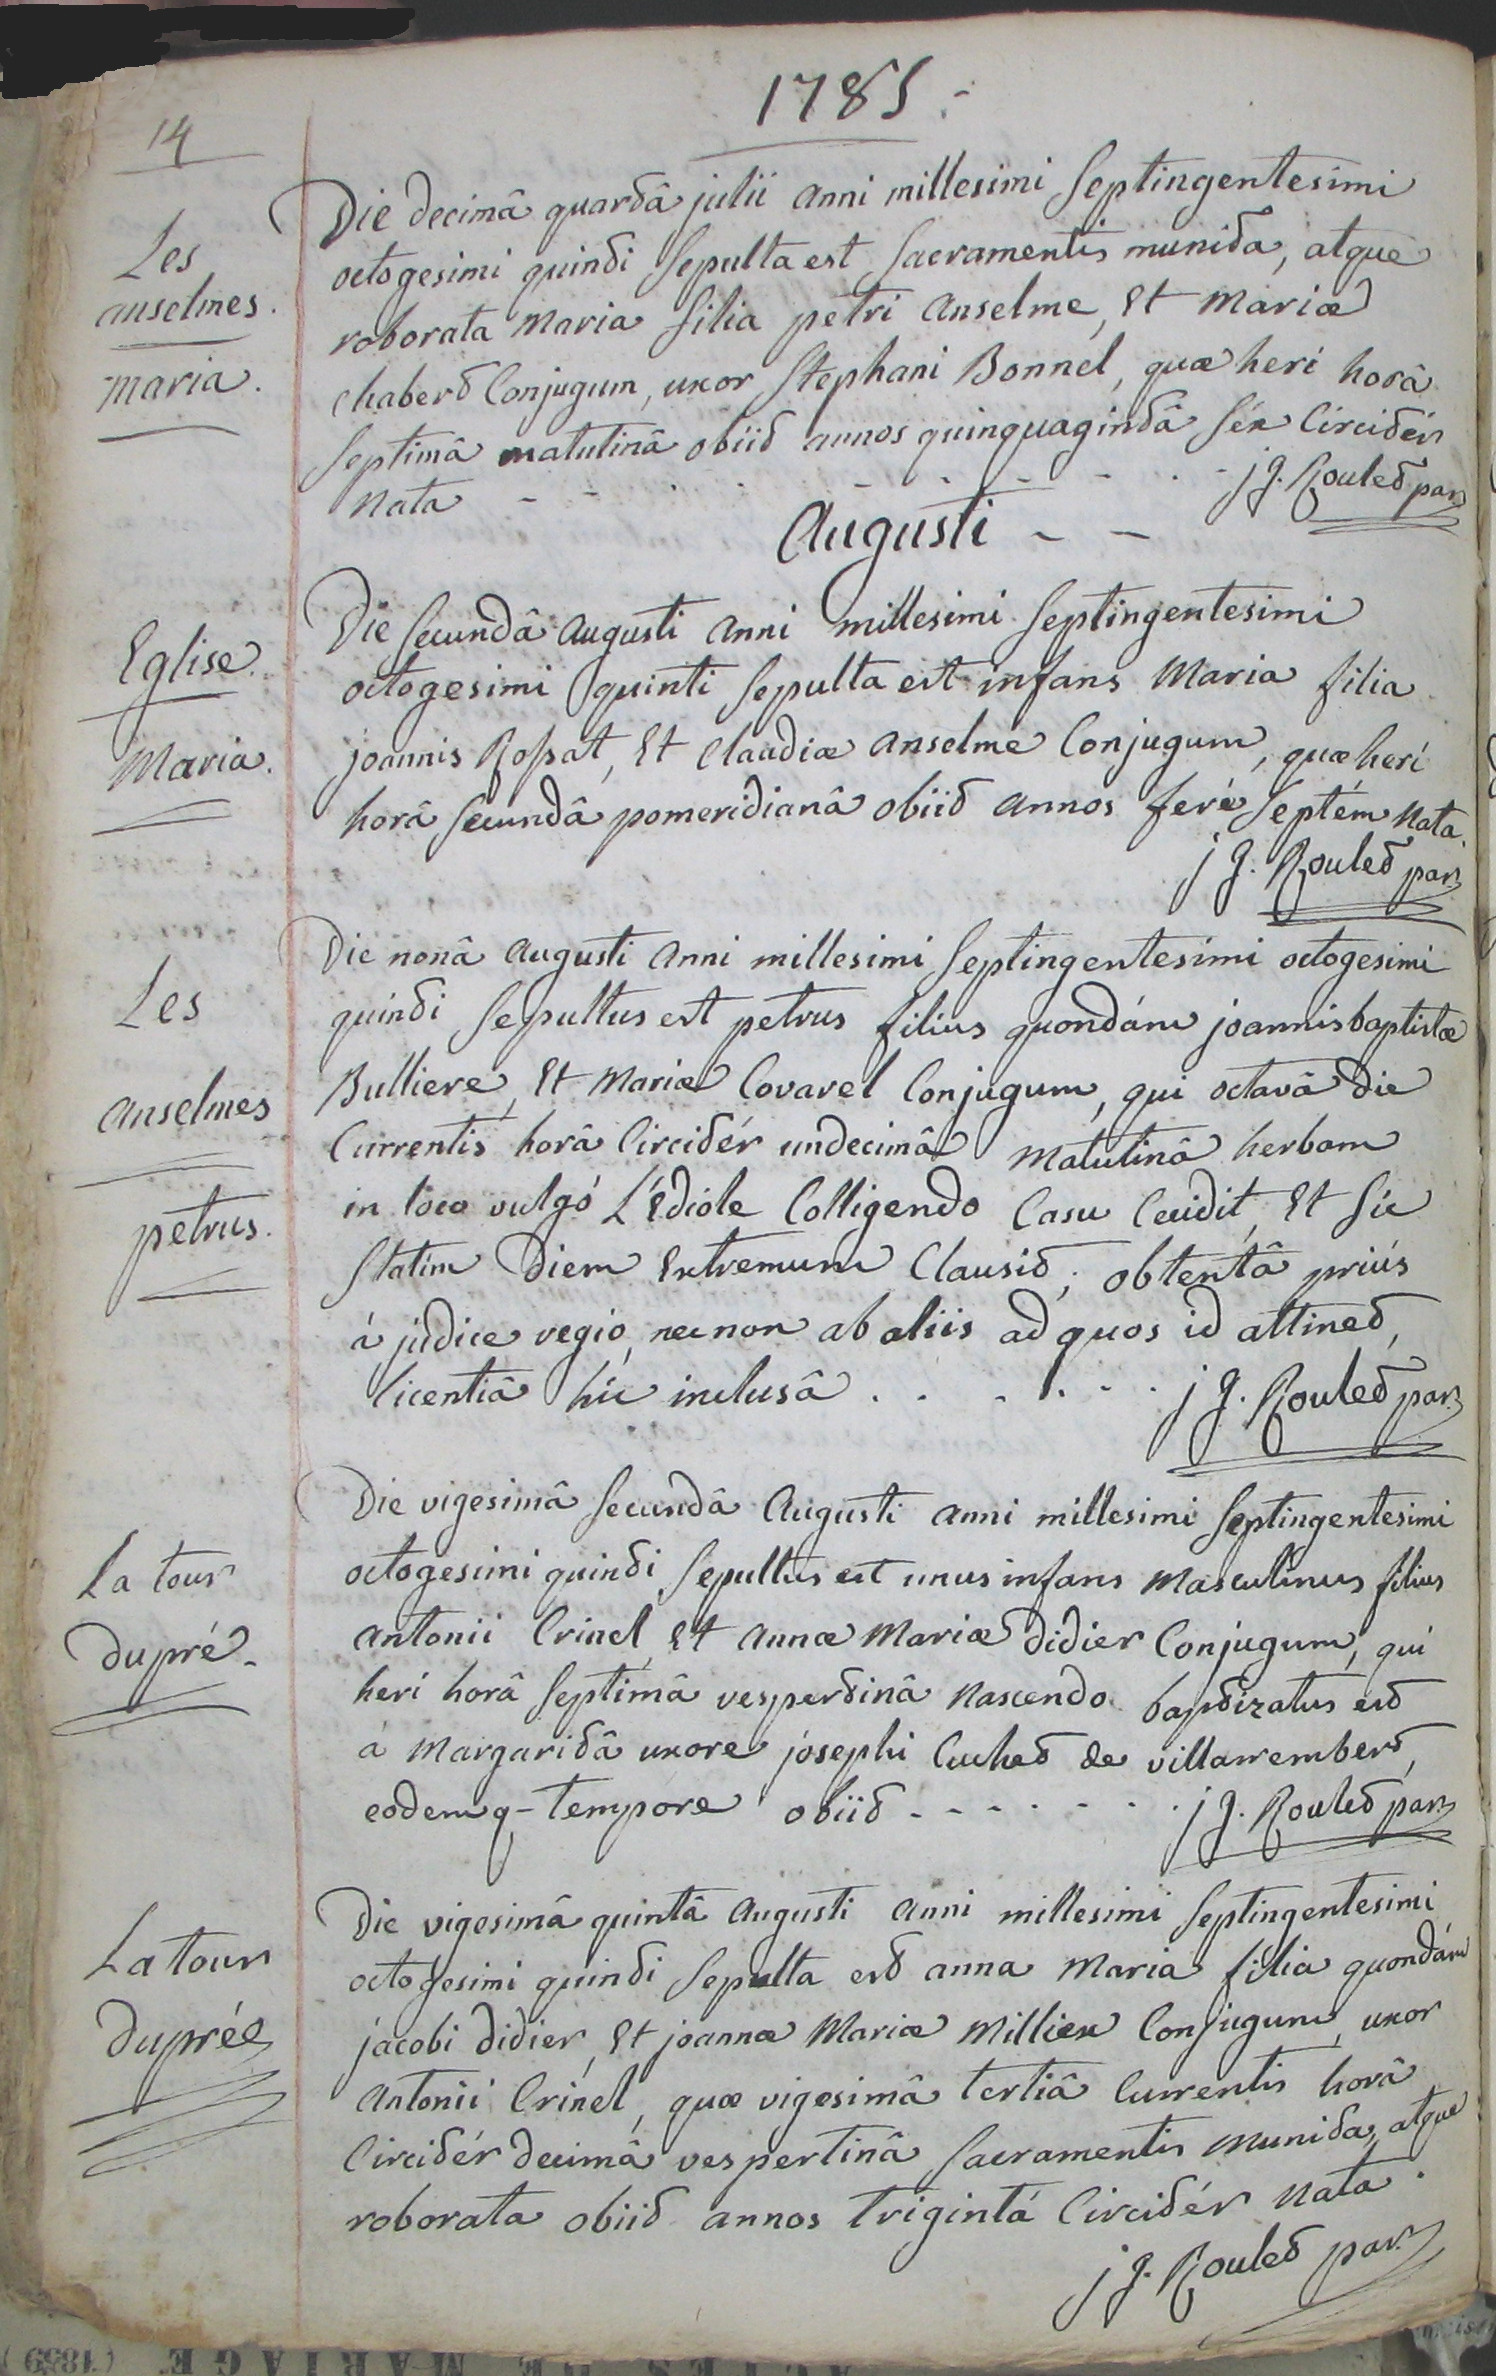 1785.
14
Les
anselmes.
maria.
Die decimâ quartâ julii anni millesimi Septingentesimi
octogesimi quinti Sepulta est Sacramentis munita, atque
roborata Maria filia petri Anselme, Et Mariæ
Chabert Conjugum, uxor Stephani Bonnel, quæ heri horâ
Septimâ matutinâ obiit annos quinquagintâ Séx Circitér
nata - - - - - - - j g. Roulet par.
Augusti - -
Eglise.
Maria.
Die Secundâ Augusti anni millesimi Septingentesimi
octogesimi quinti Sepulta est infans Maria filia
joannis Rossat, Et Claudiæ Anselme Conjugum, quæ heri
horâ Secundâ pomeridianâ obiit annos feré Septém nata.
j g. Roulet par.
Les
anselmes
petrus.
Die nonâ Augusti anni millesimi Septingentesimi octogesimi
quinti Sepultus est petrus filius quondám joannisbaptistæ
Bulliere, Et Mariæ Covarel Conjugum, qui octavâ die
Currentis horâ Circitér undecimâ matutinâ herbam
in loco vulgó L'Ediole Colligendo Casu Cecidit, Et Sic
Statim diem Extremum Clausit, obtentâ priús
á judice regio, necnon ab aliis ad quos id attinet,
licentiâ híc inclusâ . . - . - - . j g. Roulet par.
La tour
dupré.
Die vigesimâ Secundâ Augusti anni millesimi Septingentesimi
octogesimi quinti Sepultus est unus infans Masculinus filius
Antonii Crinel, Et Annæ Mariæ didier Conjugum, qui
heri horâ Septimâ vespertinâ nascendo baptizatus est
á Margaritâ uxore josephi Cuchet de villarrembert,
eodemq- tempore obiit - - - - - - - j g. Roulet par.
La tour
duprée
Die vigesimâ quintâ Augusti anni millesimi Septingentesimi
octogesimi quinti Sepulta est anna Maria filia quondám
jacobi didier, Et joannæ Mariæ Milliex Conjugum, uxor
Antonii Crinel, quæ vigesimâ tertiâ Currentis horâ
Circitér decimâ vespertinâ Sacramentis munita, atque
roborata obiit annos trigintá Circitér nata.
j g. Roulet par.
ACTES DE MARIAGE (1839)